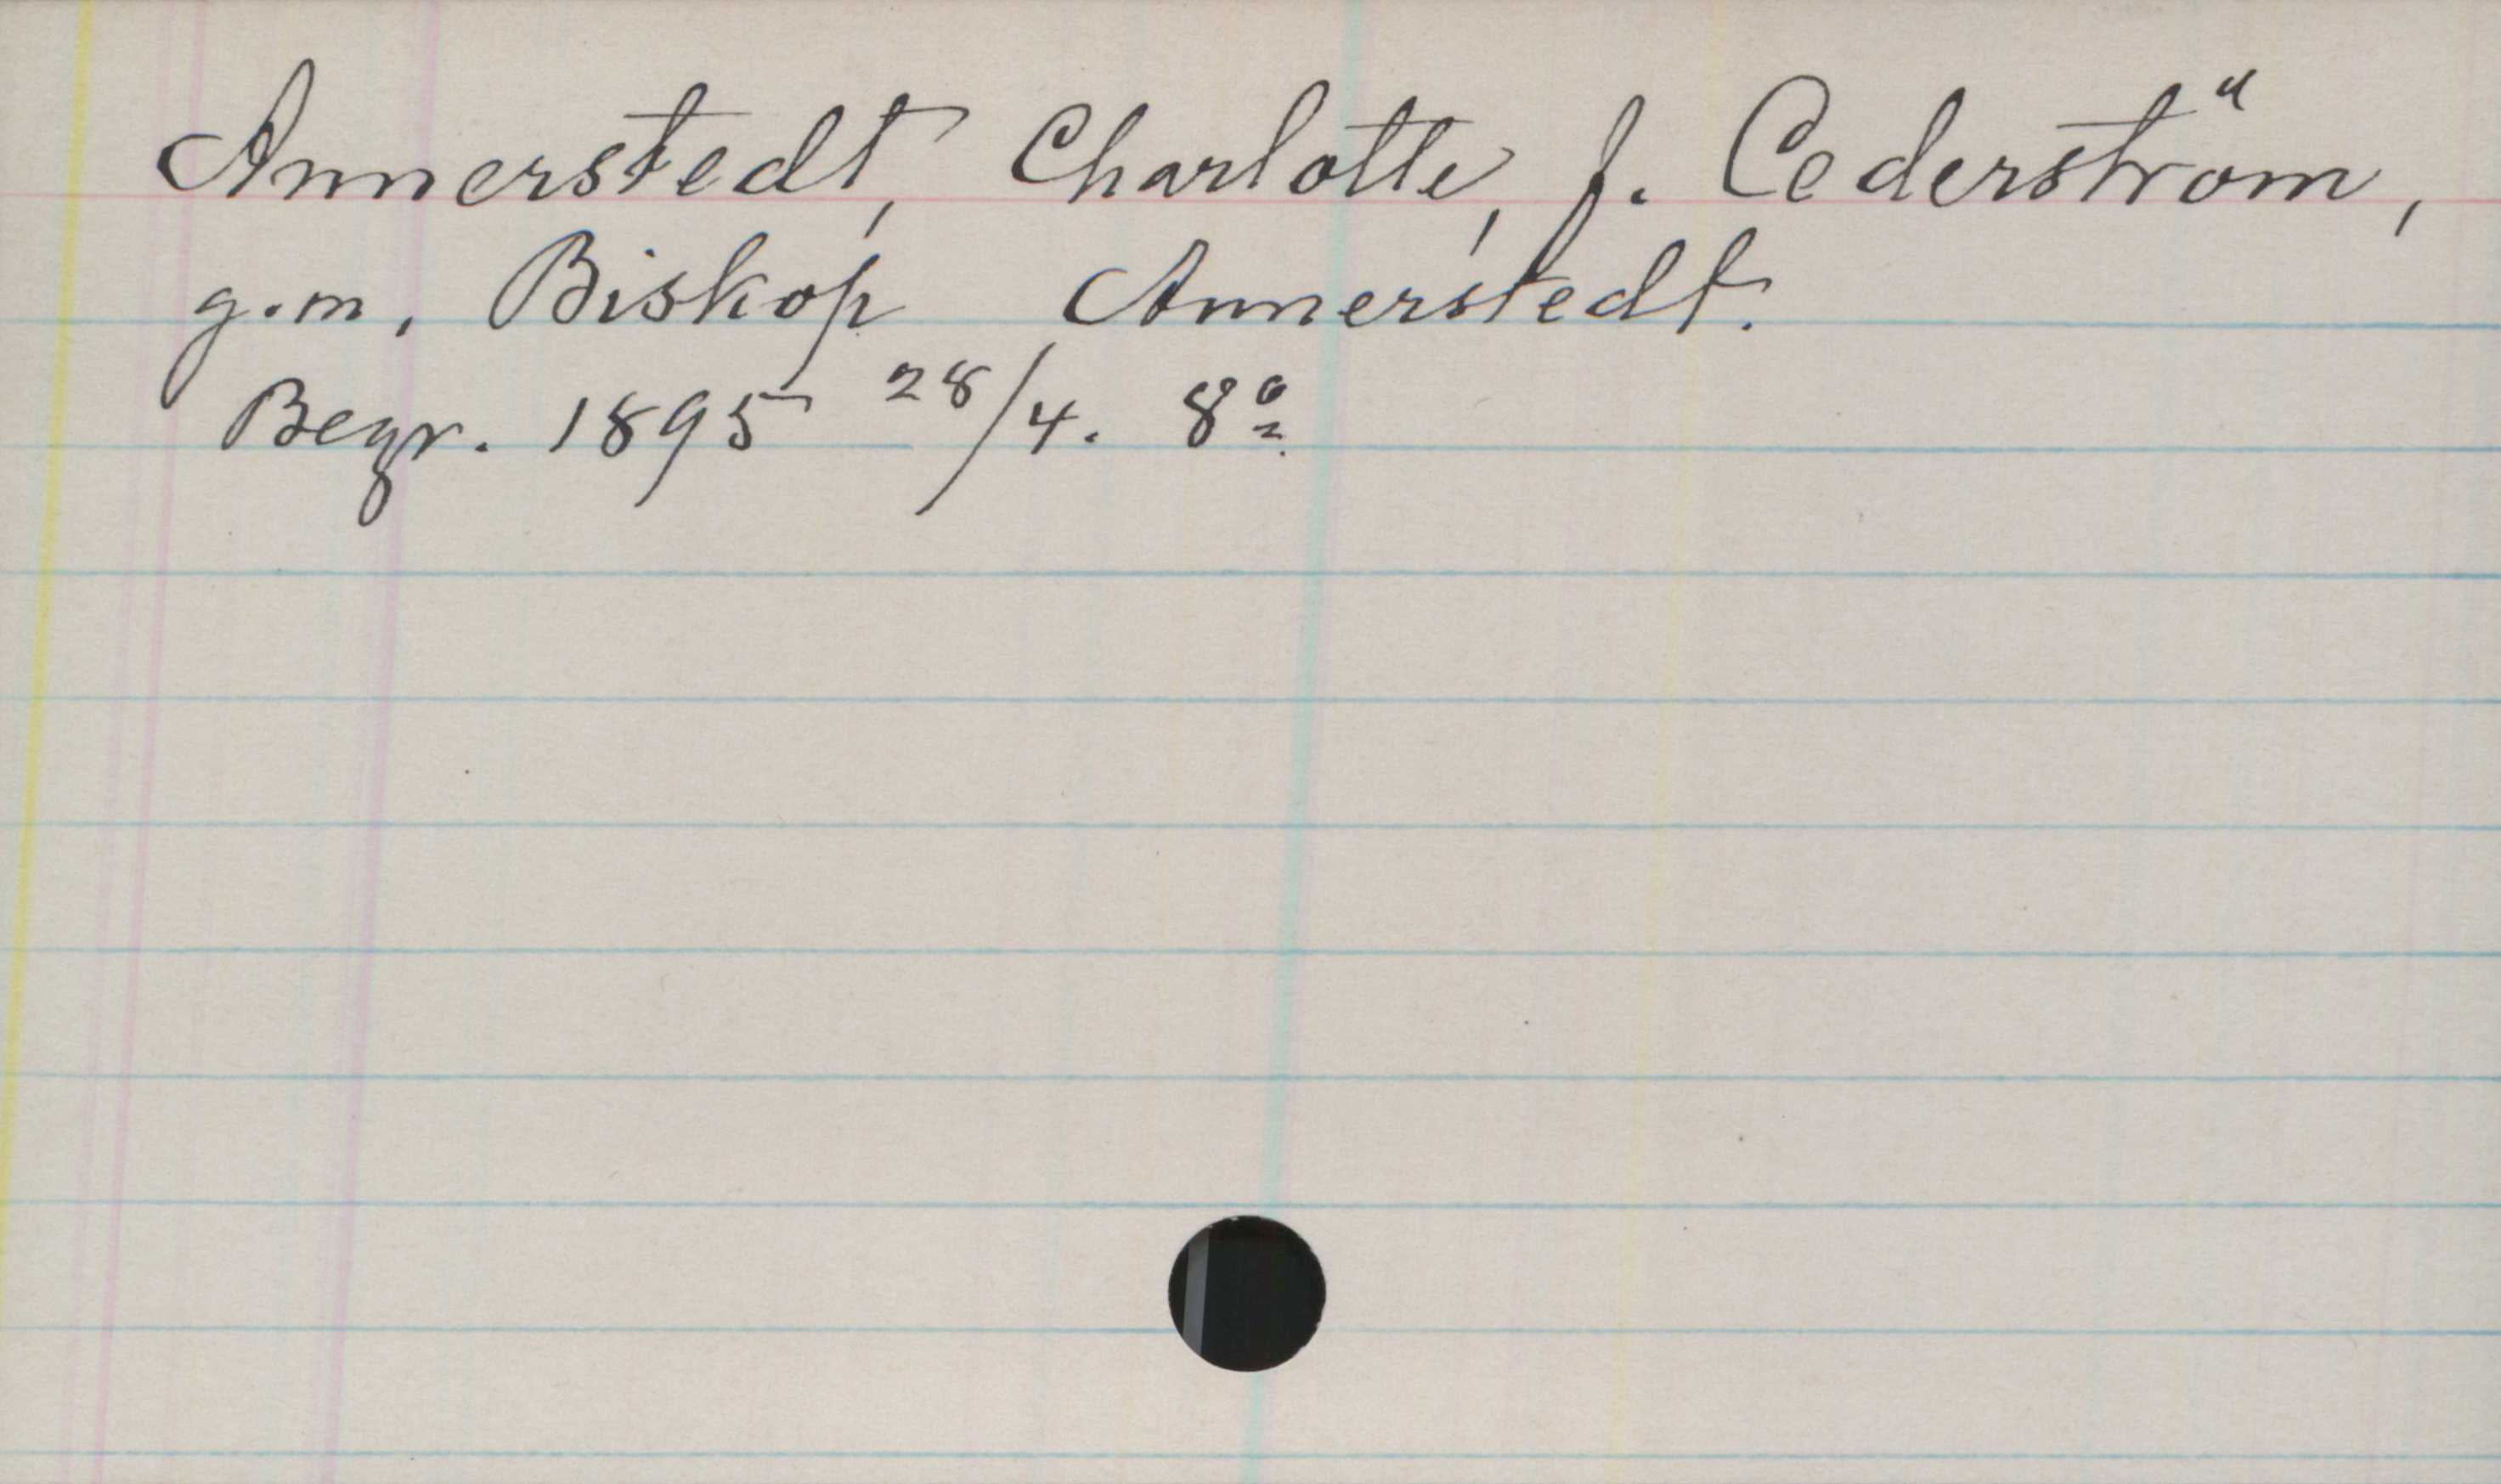 Annerstedt, Charlotte, f. Cederström,
g.m. Biskop Annerstedt.
Begr. 1895 28/4. 8º.